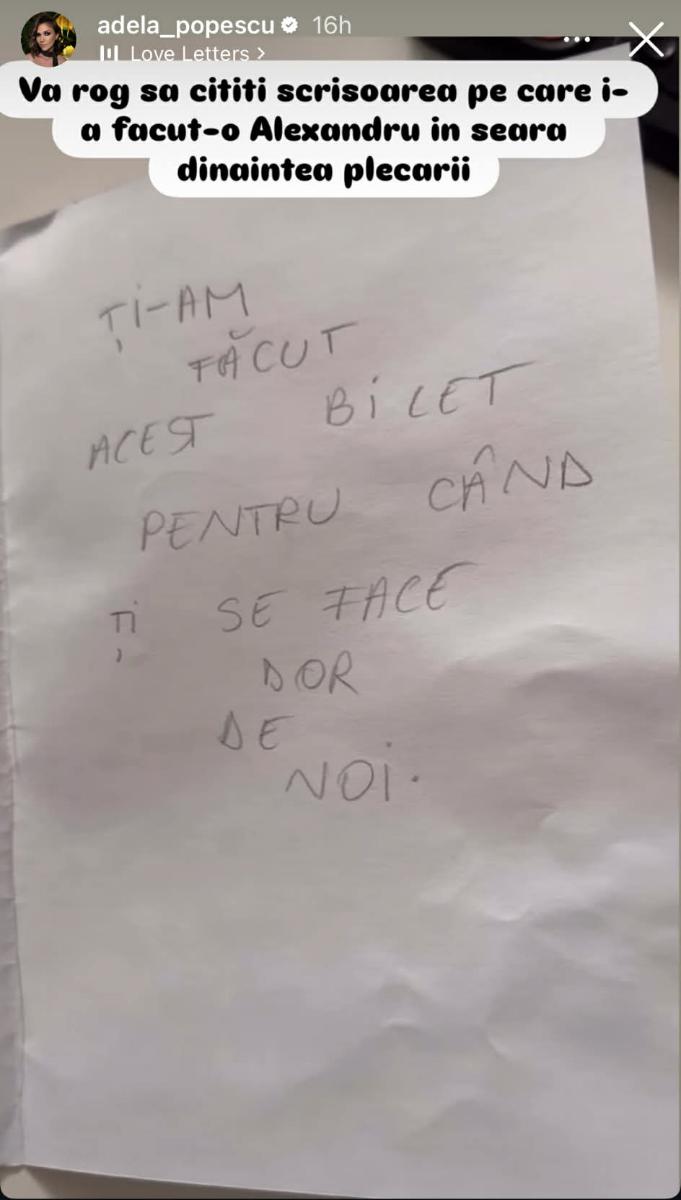 adela_popescu 16h
Love Letters >
Va rog sa cititi scrisoarea pe care i-
a facut-o Alexandru in seara
dinaintea plecarii
ȚI-AM
FĂCUT
ACEST BILET
PENTRU CÂND
ȚI SE FACE
DOR
DE
NOI.